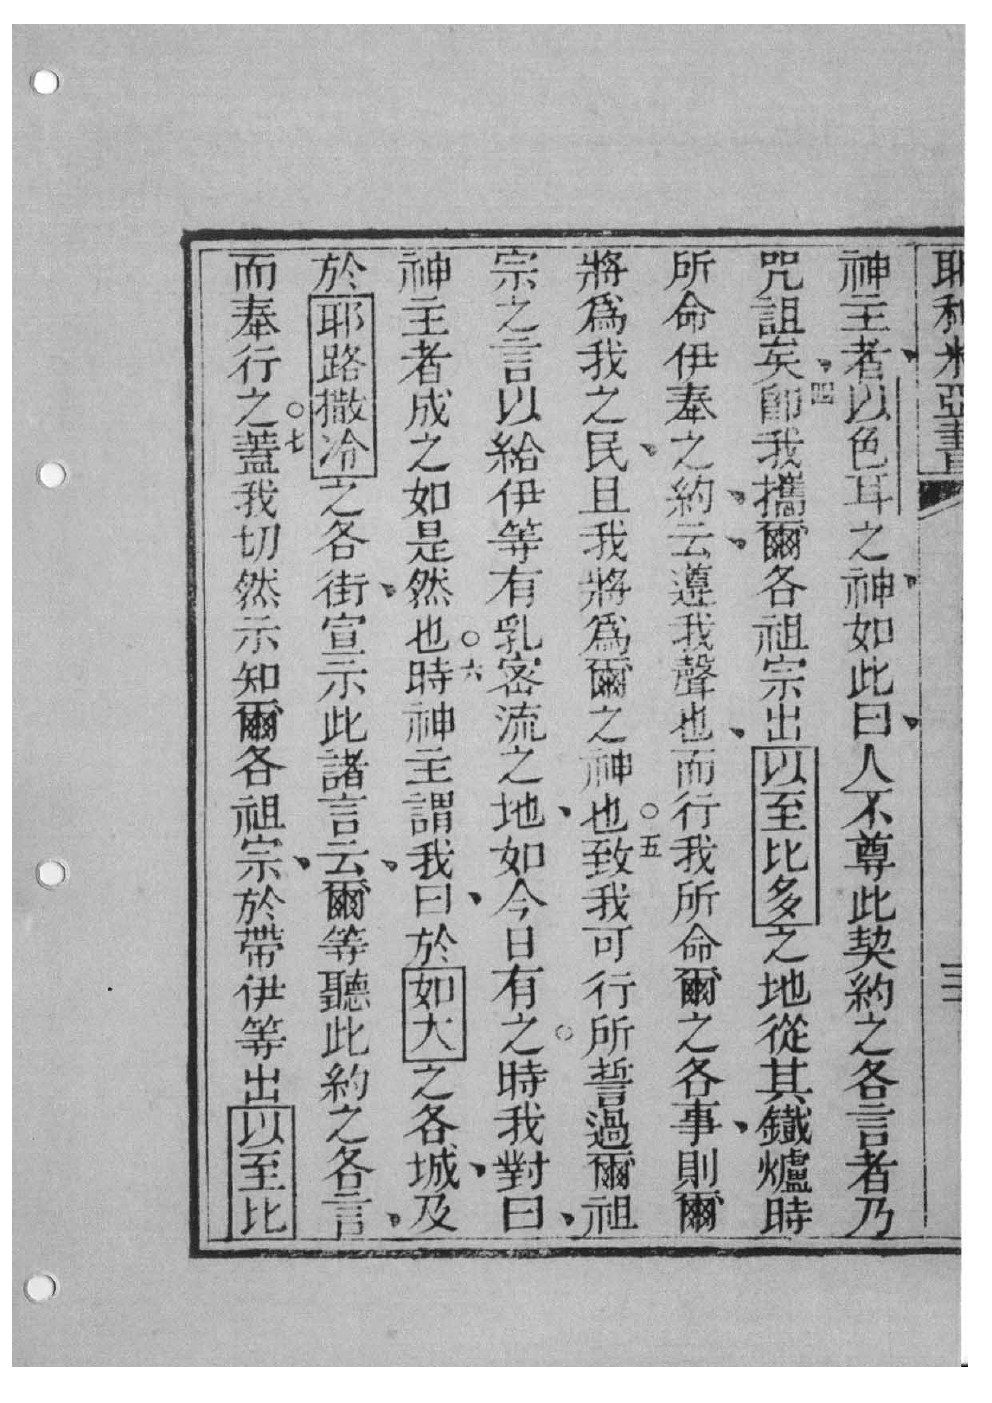 耶利米亞書 三
神主者以色耳之神如此曰人不尊此契約之各言者乃
咒詛矣四卽我攜爾各祖宗出以至比多之地從其鐵爐時
所命伊奉之約云遵我聲也而行我所命爾之各事則爾
將爲我之民且我將爲爾之神也○五致我可行所誓過爾祖
宗之言以給伊等有乳密流之地如今日有之○時我對曰
神主者成之如是然也○六時神主謂我曰於如大之各城及
於耶路撒冷之各街宣示此諸言云爾等聽此約之各言
而奉行之○七蓋我切然示知爾各祖宗於帶伊等出以至比